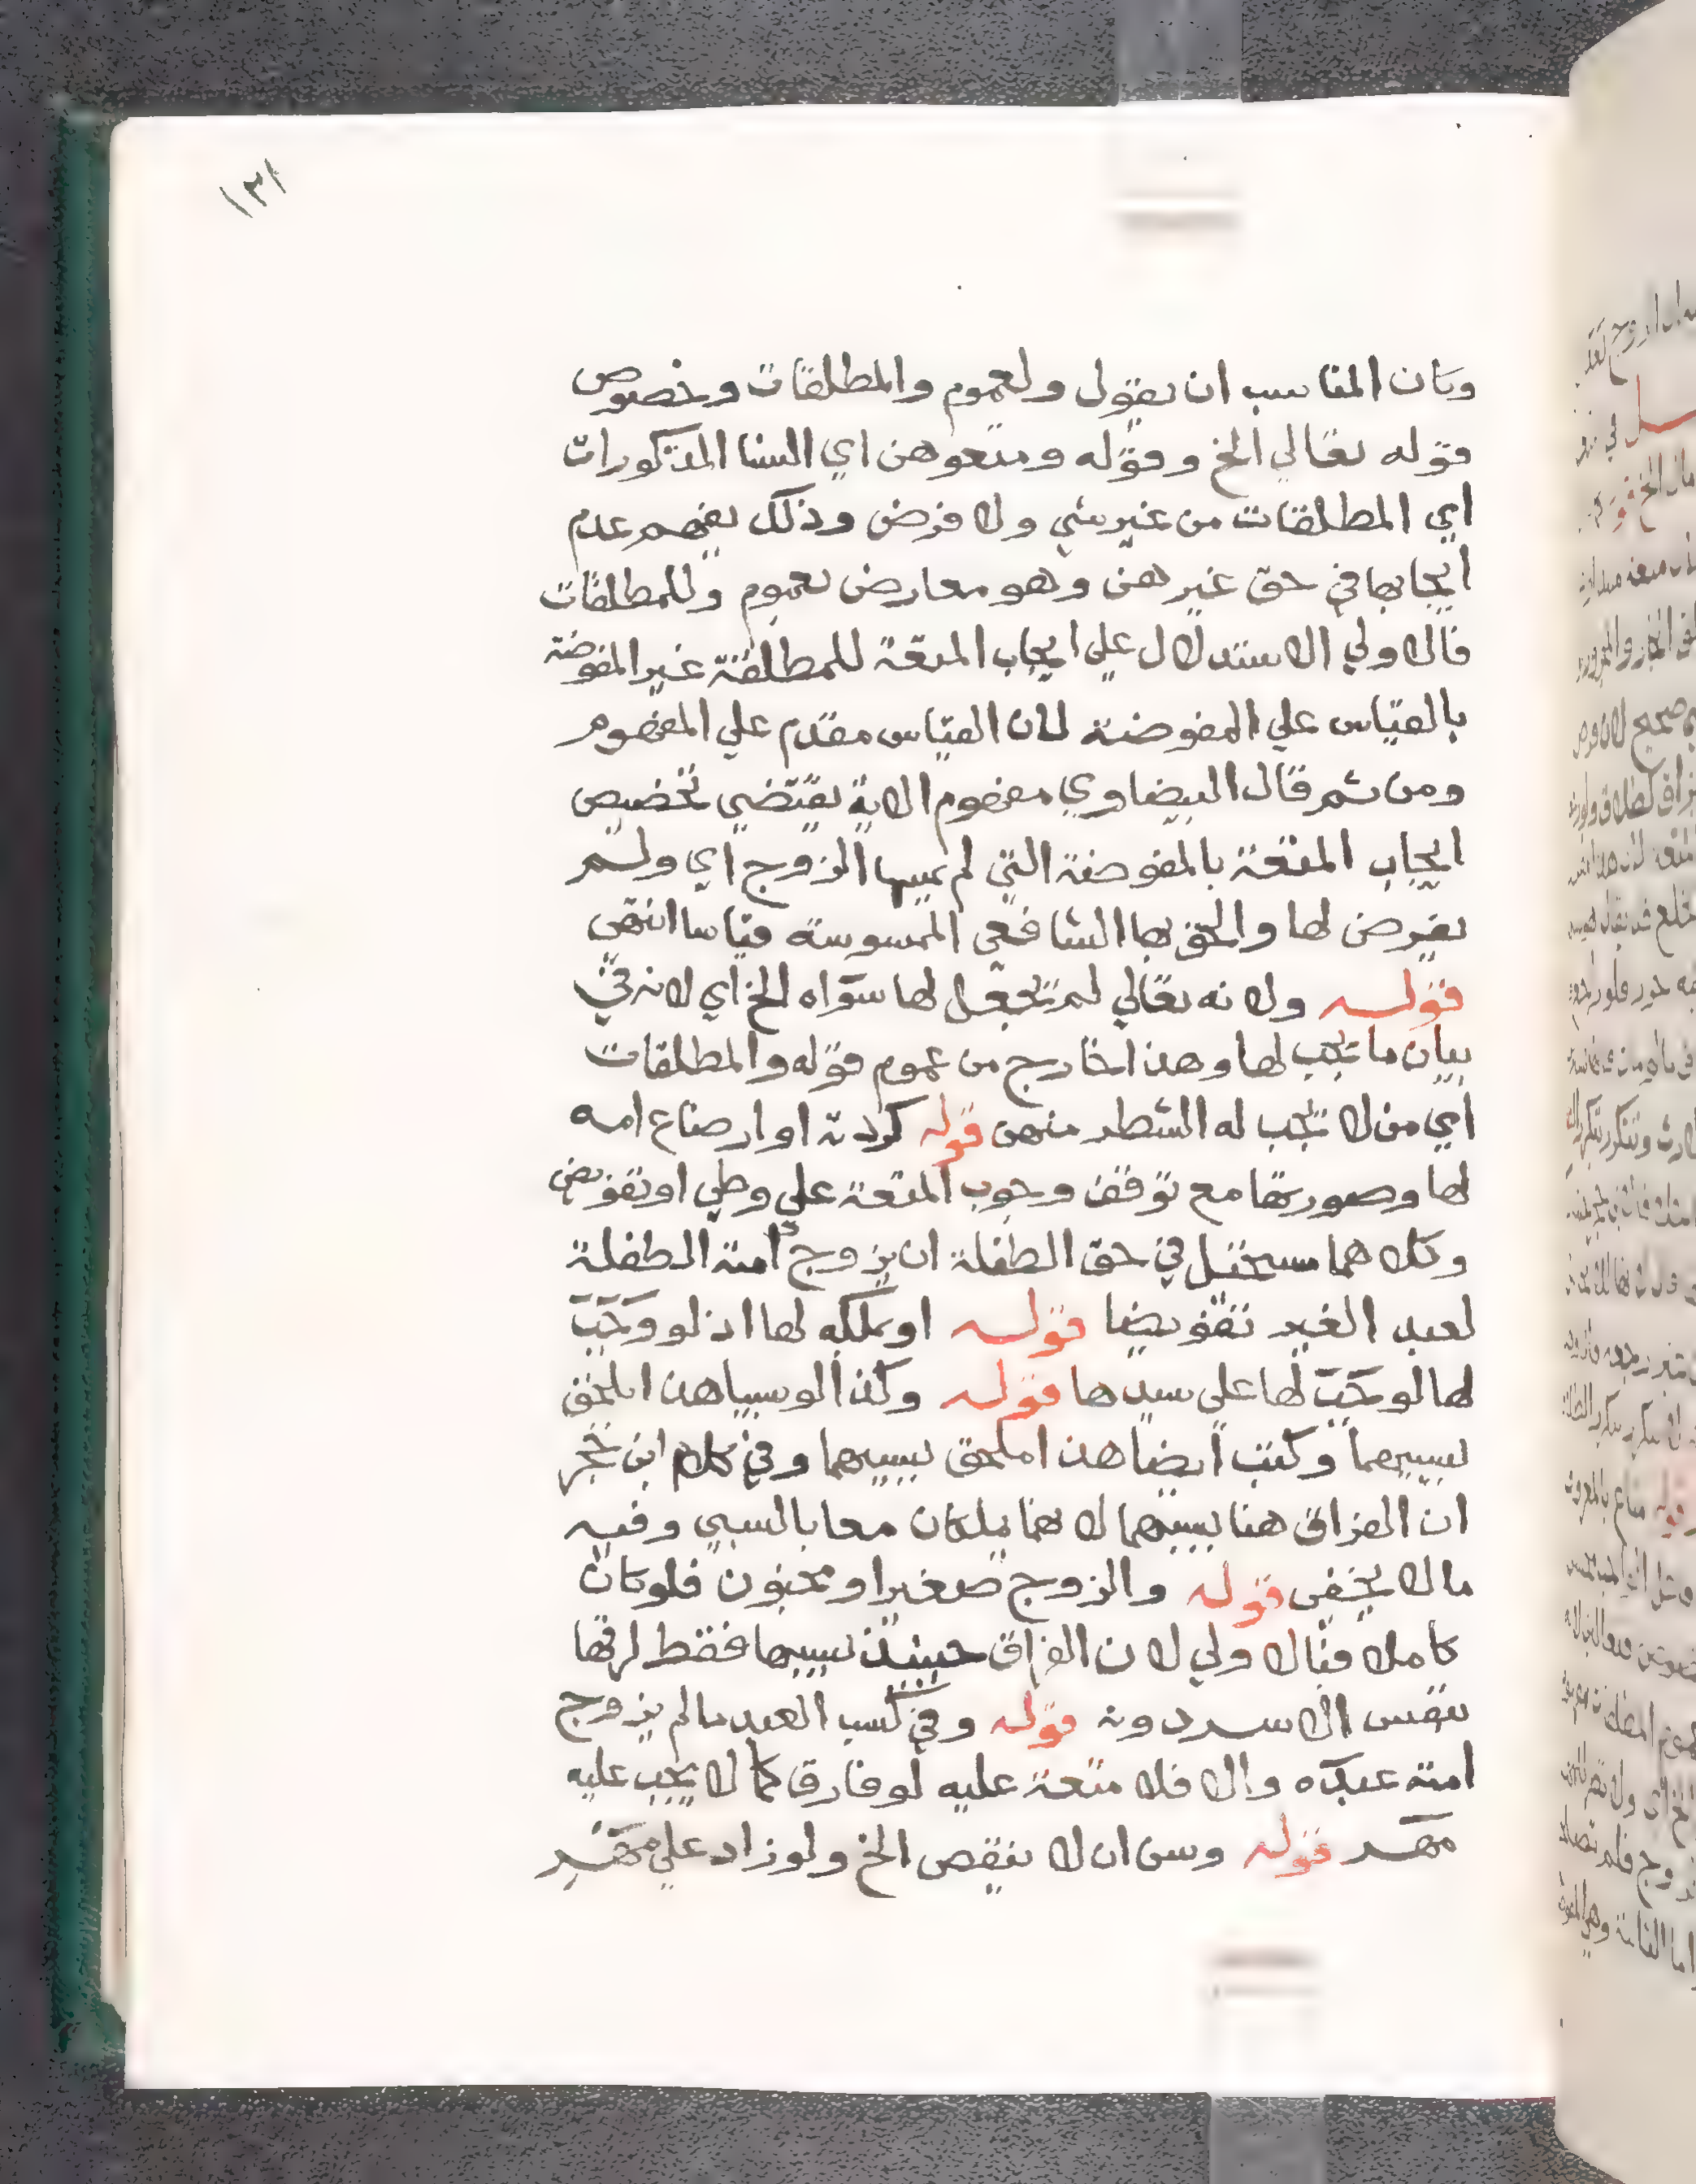 ١٣١
وكان المناسب ان يقول ولعموم والمطلقات وخصوص
قوله تعالي الخ وقوله ومتعوهن اي النسا المذكورات
اي المطلقات من غير مسي ولا فرض وذلك يفهم عدم
ايجابها في حق غيرهن وهو معارض لعموم وللمطلقات
فالاولي الاستدلال علي ايجاب المتعة للمطلقة غير المفوضة
بالقياس علي المفوضة لان القياس مقدم علي المفهوم
ومن ثم قال البيضاوي مفهوم الاية يقتضي تخصيص
ايجاب المتعة بالمفوضة التي لم يمسها الزوج اي ولم
يفرض لها والحق بها الشافعي الممسوسة قياسا انتهي
قوله ولانه تعالي لم تجعل لها سواه الخ اي لانه في
بيان ما تجب لها وهذا خارج من عموم قوله والمطلقات
اي من لا تجب له الشطر منهن قوله كردته او ارضاع امه
لها وصورتها مع توقف وجوب المتعة علي وطي او تفويض
وكلاهما مستحيل في حق الطفلة ان يزوج امته الطفلة
لعبد الغير تفويضا قوله او بملكه لها اذ لو وجبت
لها لوجبت لها علي سيدها قوله وكذا لو سبيا هذا ملحق
بسببهما وكتب ايضا هذا ملحق بسببهما وفي كلام ابن حجر
ان الفراق هنا بسببهما لانهما يملكان معا بالسبي وفيه
ما لا يخفي قوله والزوج صغير او مجنون فلو كان
كاملا فالاولي لان الفراق حينيذ بسببها فقط لرقها
بنفس الاسر دونه قوله وفي كسب العبد مالم يزوج
امته عبده والا فلا متعة عليه لو فارق كما لا يجب عليه
مهر قوله وسن ان لا ينقص الخ ولو زاد علي مهر